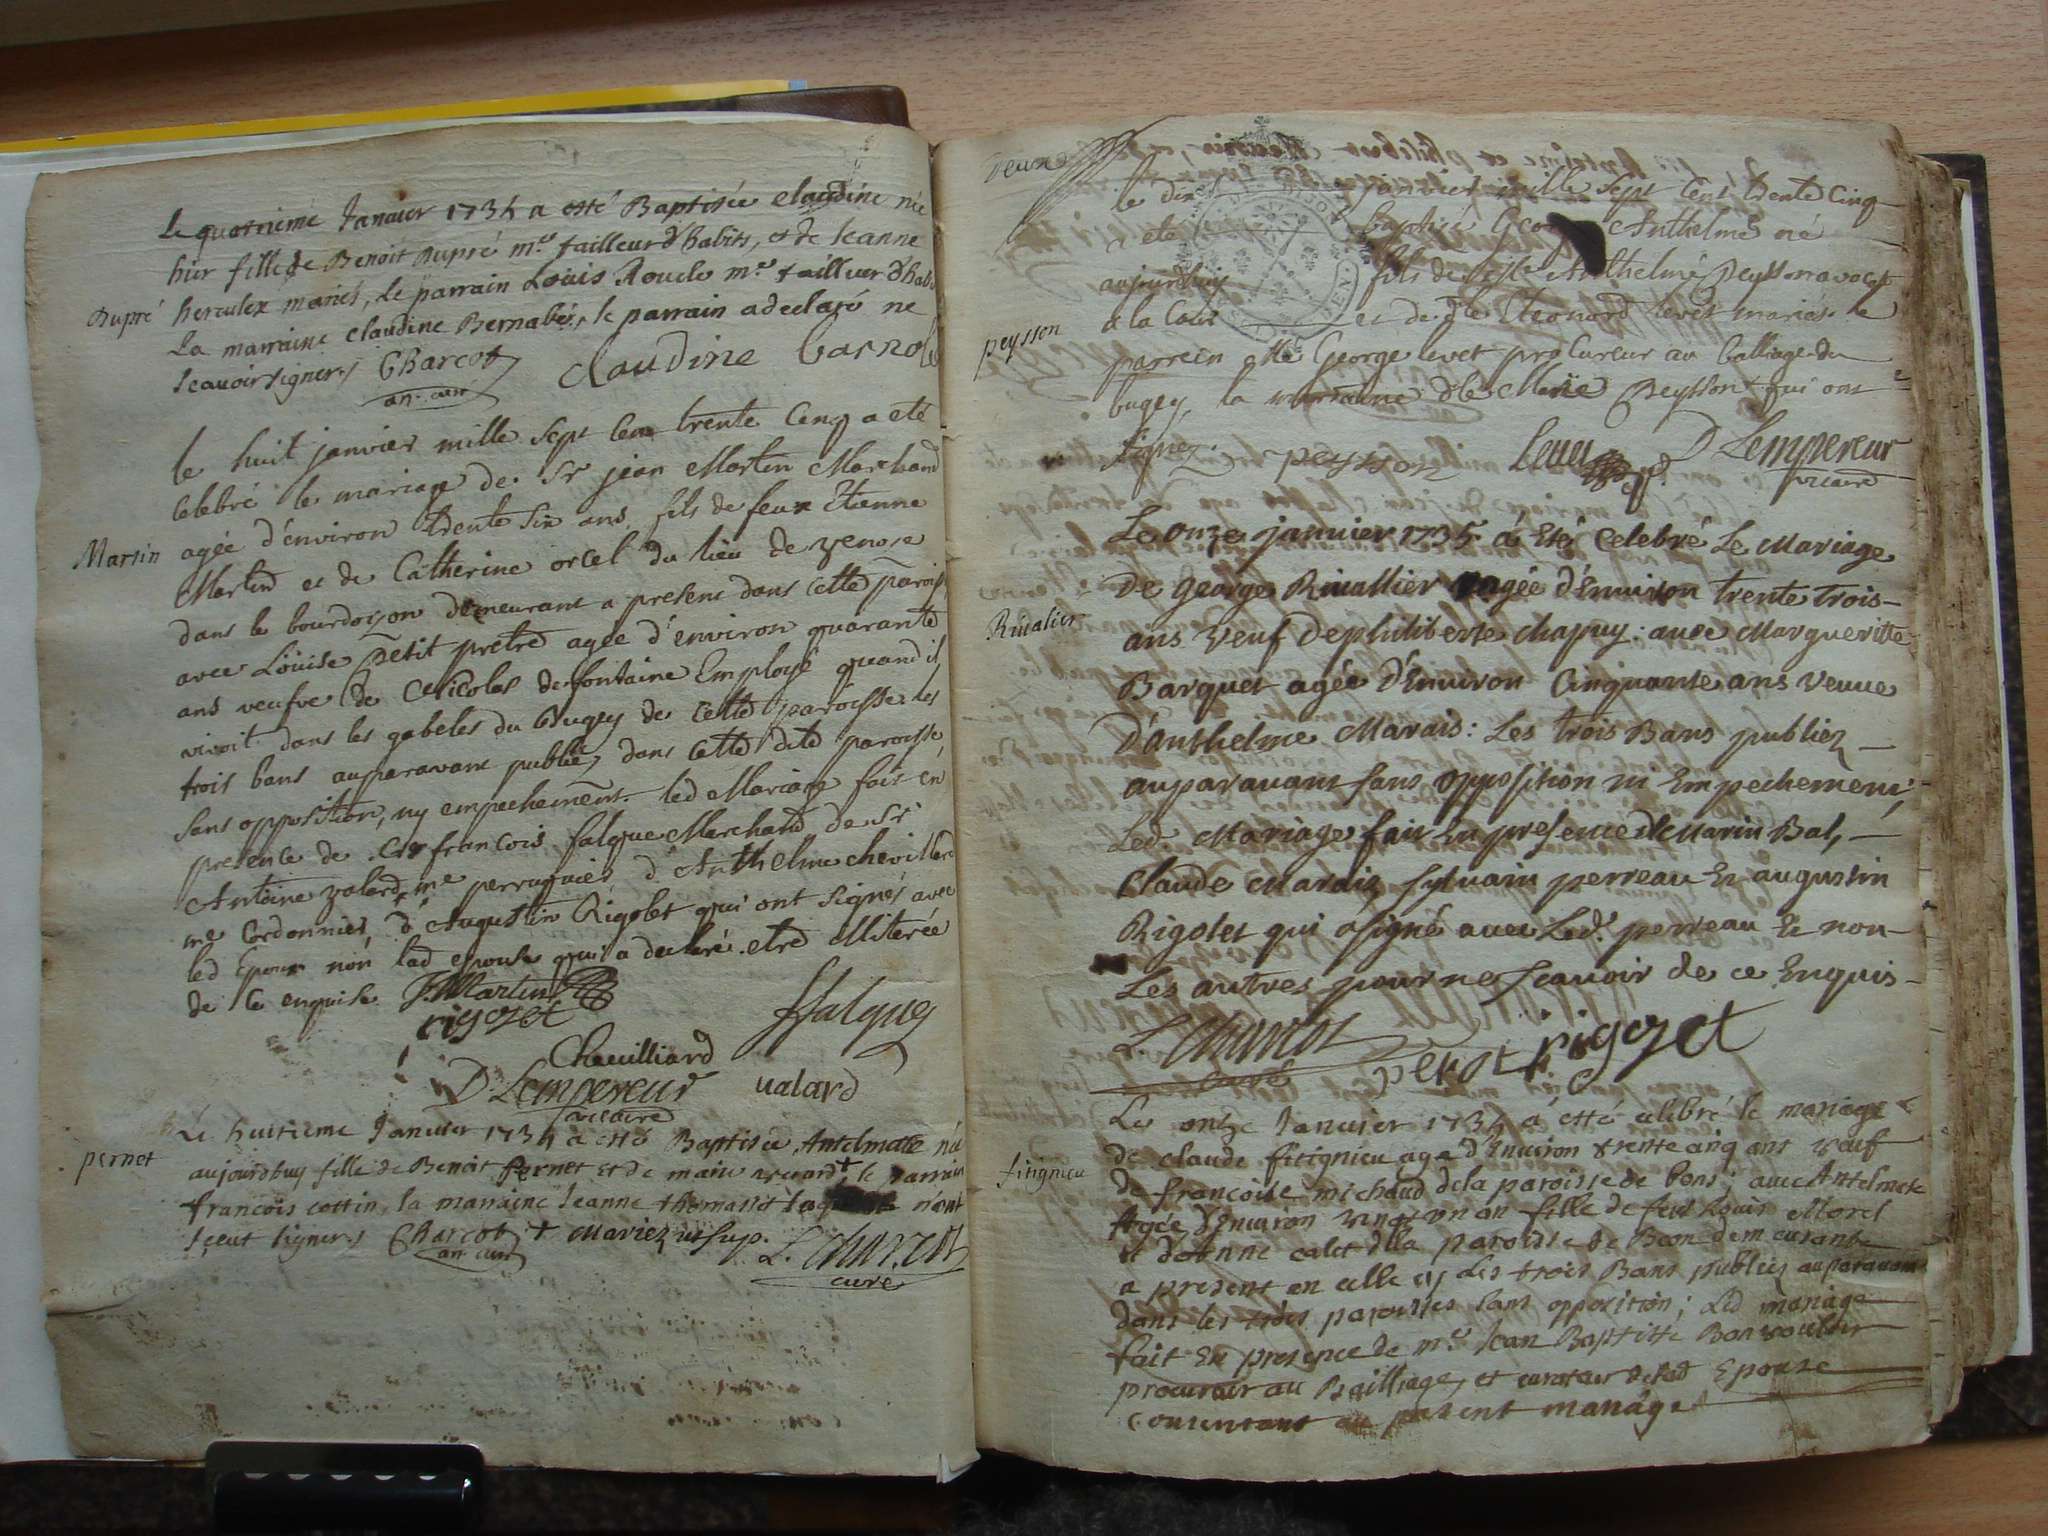 Le quatrieme Januier 1735 a esté Baptisée claudine née
hier fille de Benoit Dupré m.e tailleur d'habits, et de Jeanne
Dupré
herculex mariés, Le parrain Louis Roucle m.e tailleur d'habi
La marraine Claudine Bernabés, le parrain a declaré ne
scauoir signer / Charcot Claudine
an. curé
le huit janvier mille sept cent trente cinq a eté
celebré le mariage de Sr jean Martin Marchand
agée d'environ trente six ans, fils de feux Etienne
Martin
Martin et de Catherine orcel du lieu de venose
dans le bourdoizon demeurant a present dans cette parois
avec Loüise Petit pretre agée d'environ quarante
ans veufve de Nicolas defontaine Employé quand il
vivoit dans les gabeles du Bugey de cette paroisse les
trois bans auparavant publiéz dans cette dite paroisse
sans opposition, ny empechement. led Mariage fait en
presence de Sr francois falque Marchand de Sr
Antoine valard me perruquier d'Anthelme chevillard
me Cordonnier, d'Augustin Rigolet qui ont signés avec
led Epoux non lad epouse qui a declaré etre Miterée
de ce enquise J Martin
rigozet ffalque
Cheuilliard
D. Lempereur ualard
vicaire
Le huitieme Januier 1735 a esté Baptisée Antelmette née
pernet
aujourdhuy fille de Benoit pernet et de marie + le parrain
francois cottin, la marraine Jeanne thomasset n'ont
sçeut signer / Charcot + Mariez ut sup.
an. curé L. charcot
curé
le dix janvier mille sept cent trente cinq
a eté baptisé George Anthelme né
aujourdhuy fils de Anthelme Peysson avocat
a la Cour et de dlle Leonard levet mariés le
peysson
parrein Me George levet procureur au balliage du
bugey, la marraine dlle Marie Peysson qui ont
signéz. peysson Leuet D Lempereur
vicaire
Le onze januier 1735 á Eté Celebré Le Mariage
De George Riuallier agée d'Enuiron trente trois
Riualier
ans veuf Dephiliberte chapuy: auec Margueritte
Barquet agée d'Enuiron Cinquante ans veuue
D'anthelme Marais: Les trois Bans publiez
auparauant sans opposition ni Empechement;
Led. Mariage fait En presence de Marin Bal,
Claude Marais, syluain perreau Et augustin
Rigolet qui a signé auec Led. perreau Et non
Les autres pour ne scauoir de ce Enquis
L Charcot
curé perot rigozet
Le onze Januier 1735 a esté celebré le mariage
de claude fitignieu agé d'Enuiron trente cinq ans veuf
fitignieu
de francoise michaud dela paroisse de bons; auec Antelmete
Agée d'Enuiron vingt un an fille de feu Louis Morel
et d'anne calet dela paroisse de Beon demeurante
a present en celle cy Les trois Bans publiés auparauant
dans les trois paroisses sans opposition; Led mariage
fait En presence de m.e Jean Baptiste
procureur au Bailliage, et curateur de lad Epouse
consentant au present mariage